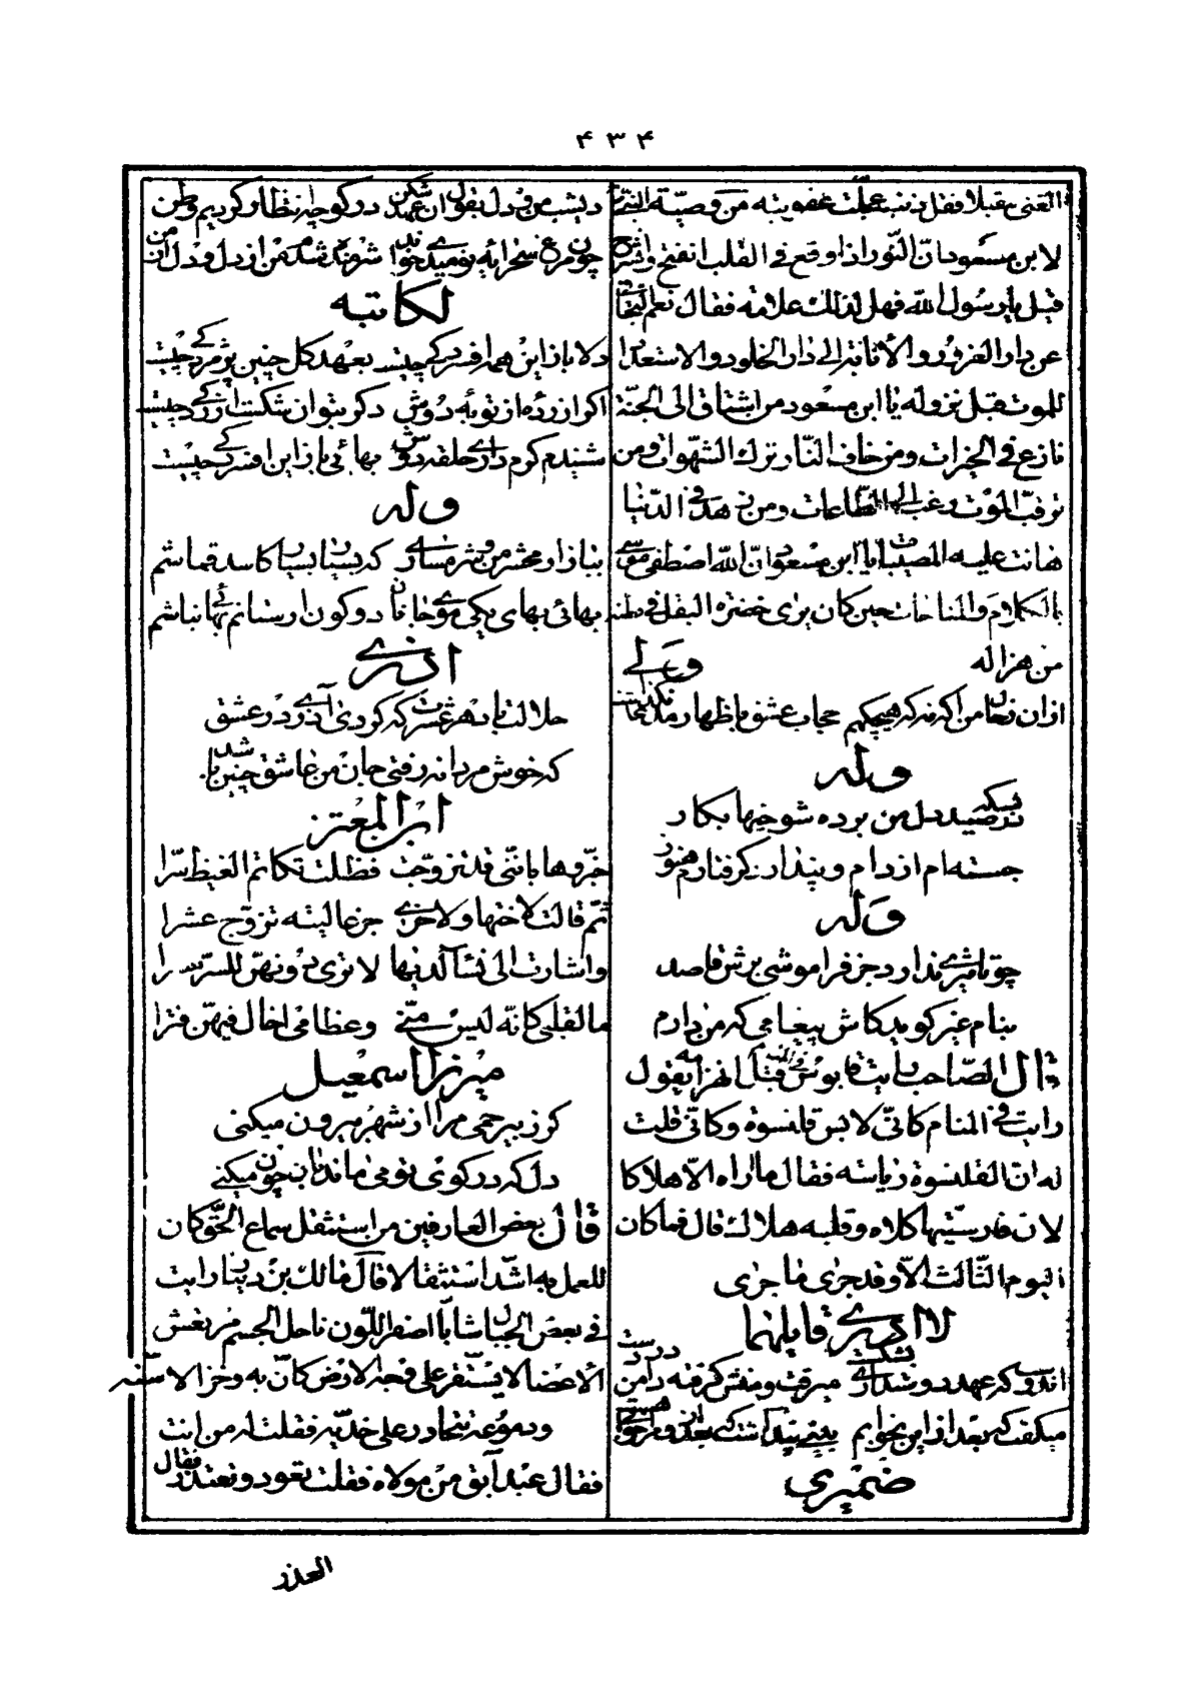 ۴۳۴
الغنى مقبلا فقل ذنب عجلت عقوبته من وصية النبي
لابن مسعود ان النور اذا وقع في القلب انفتح وانشرح
قيل يا رسول الله فهل لذلك علامة فقال نعم التجافي
عن دار الغرور والأنابة الى دار الخلود والاستعداد
للموت قبل نزوله يا ابن مسعود من اشتاق الى الجنة
نازع في الخيرات ومن خاف النار ترك الشهوات ومن
ترقب الموت رغب الى الطاعات ومن زهد في الدنيا
هانت عليه المصيبات يا ابن مسعود ان الله اصطفى موسى
بالكلام والمناجات حين كان يرى خضرة البقل في بطنه
من هزاله
ازان زحال من اکه نه که هیچکم حجاب عشق باظهار مدعا
وله
صید دل من برده شوخیها بکار
جسته ام از دام و پندارد گرفتارم هنوز
وله
چو تاثیری ندارد جز فراموشی برش قاصد
بنام غیر کوید کاش پیغامی که من دارم
قال الصاحب رايت قابوس قبل انهزامه يقول
رايت في المنام كاني لابس قلنسوة وكاني قلت
له ان القلنسوة رياسة فقال ما اراه الا هلاكا
لان فارسيتها كلاه وقلبه هلاك قال فما كان
اليوم الثالث الا وقد جرى ما جرى
لا ادري قايلهما
اندوکه عهد دوشداری بشکست میرفت ومنش گرفته دامن در دست
میکفت که بعد ازاین بخوابم بینی پنداشت که بعد ازاو مرا خوابی هست
ضميري
دیشب من و دل بقول ان عهد شکن در کوچه انتظار کردیم وطن
چون مرغ سحر آیه نومیدی خواند شرمنده شد من از دل و دل از من
لكاتبه
دلا باز این همه افسردگی چیست بعهد کل چنین پژمردگی چیست
اگر ازرده از توبه دوش دگر بتوان شکست ازردگی چیست
شنیدم کرم داری حلقه دوش بهائی باز این افسردگی چیست
وله
ببازار محشر من و شرمساری که بسیار بسیار کاسد قماشم
بهائی بهای یکی موی جانان دو کون ار ستانم بهائی نباشم
اذری
حلالت باد هر عشرت که کردی آذری در عشق
که خوش مردانه رفتی جان من عاشق چنین باشد
ابن المعتز
خبروها بانني قد تزوجت فظلت تكاتم الغيظ سرا
ثم قالت لاختها ولاخرى جزعا ليته تزوج عشرا
واشارت الى نساء لديها لا ترى دونهن للسر سترا
ما لقلبي كانه ليس مني وعظامي اخال فيهن فترا
ميرزا اسمعيل
گر ز بیرحمی مرا از شهر بیرون میکنی
دل که در کوی تو می ماند بان چون میکنی
قال بعض العارفين من استثقل سماع الحق كان
للعمل به اشد استثقالا قال مالك بن دينار رايت
في بعض الجبال شابا اصفر اللون ناحل الجسم مرتعش
الأعضاء لا يستقر على وجه الارض كان به وخز الاسنه
ودموعه تتحادر على خديه فقلت له من انت
فقال عبد آبق من مولاه فقلت تعود وتعتذر فقال
العذر